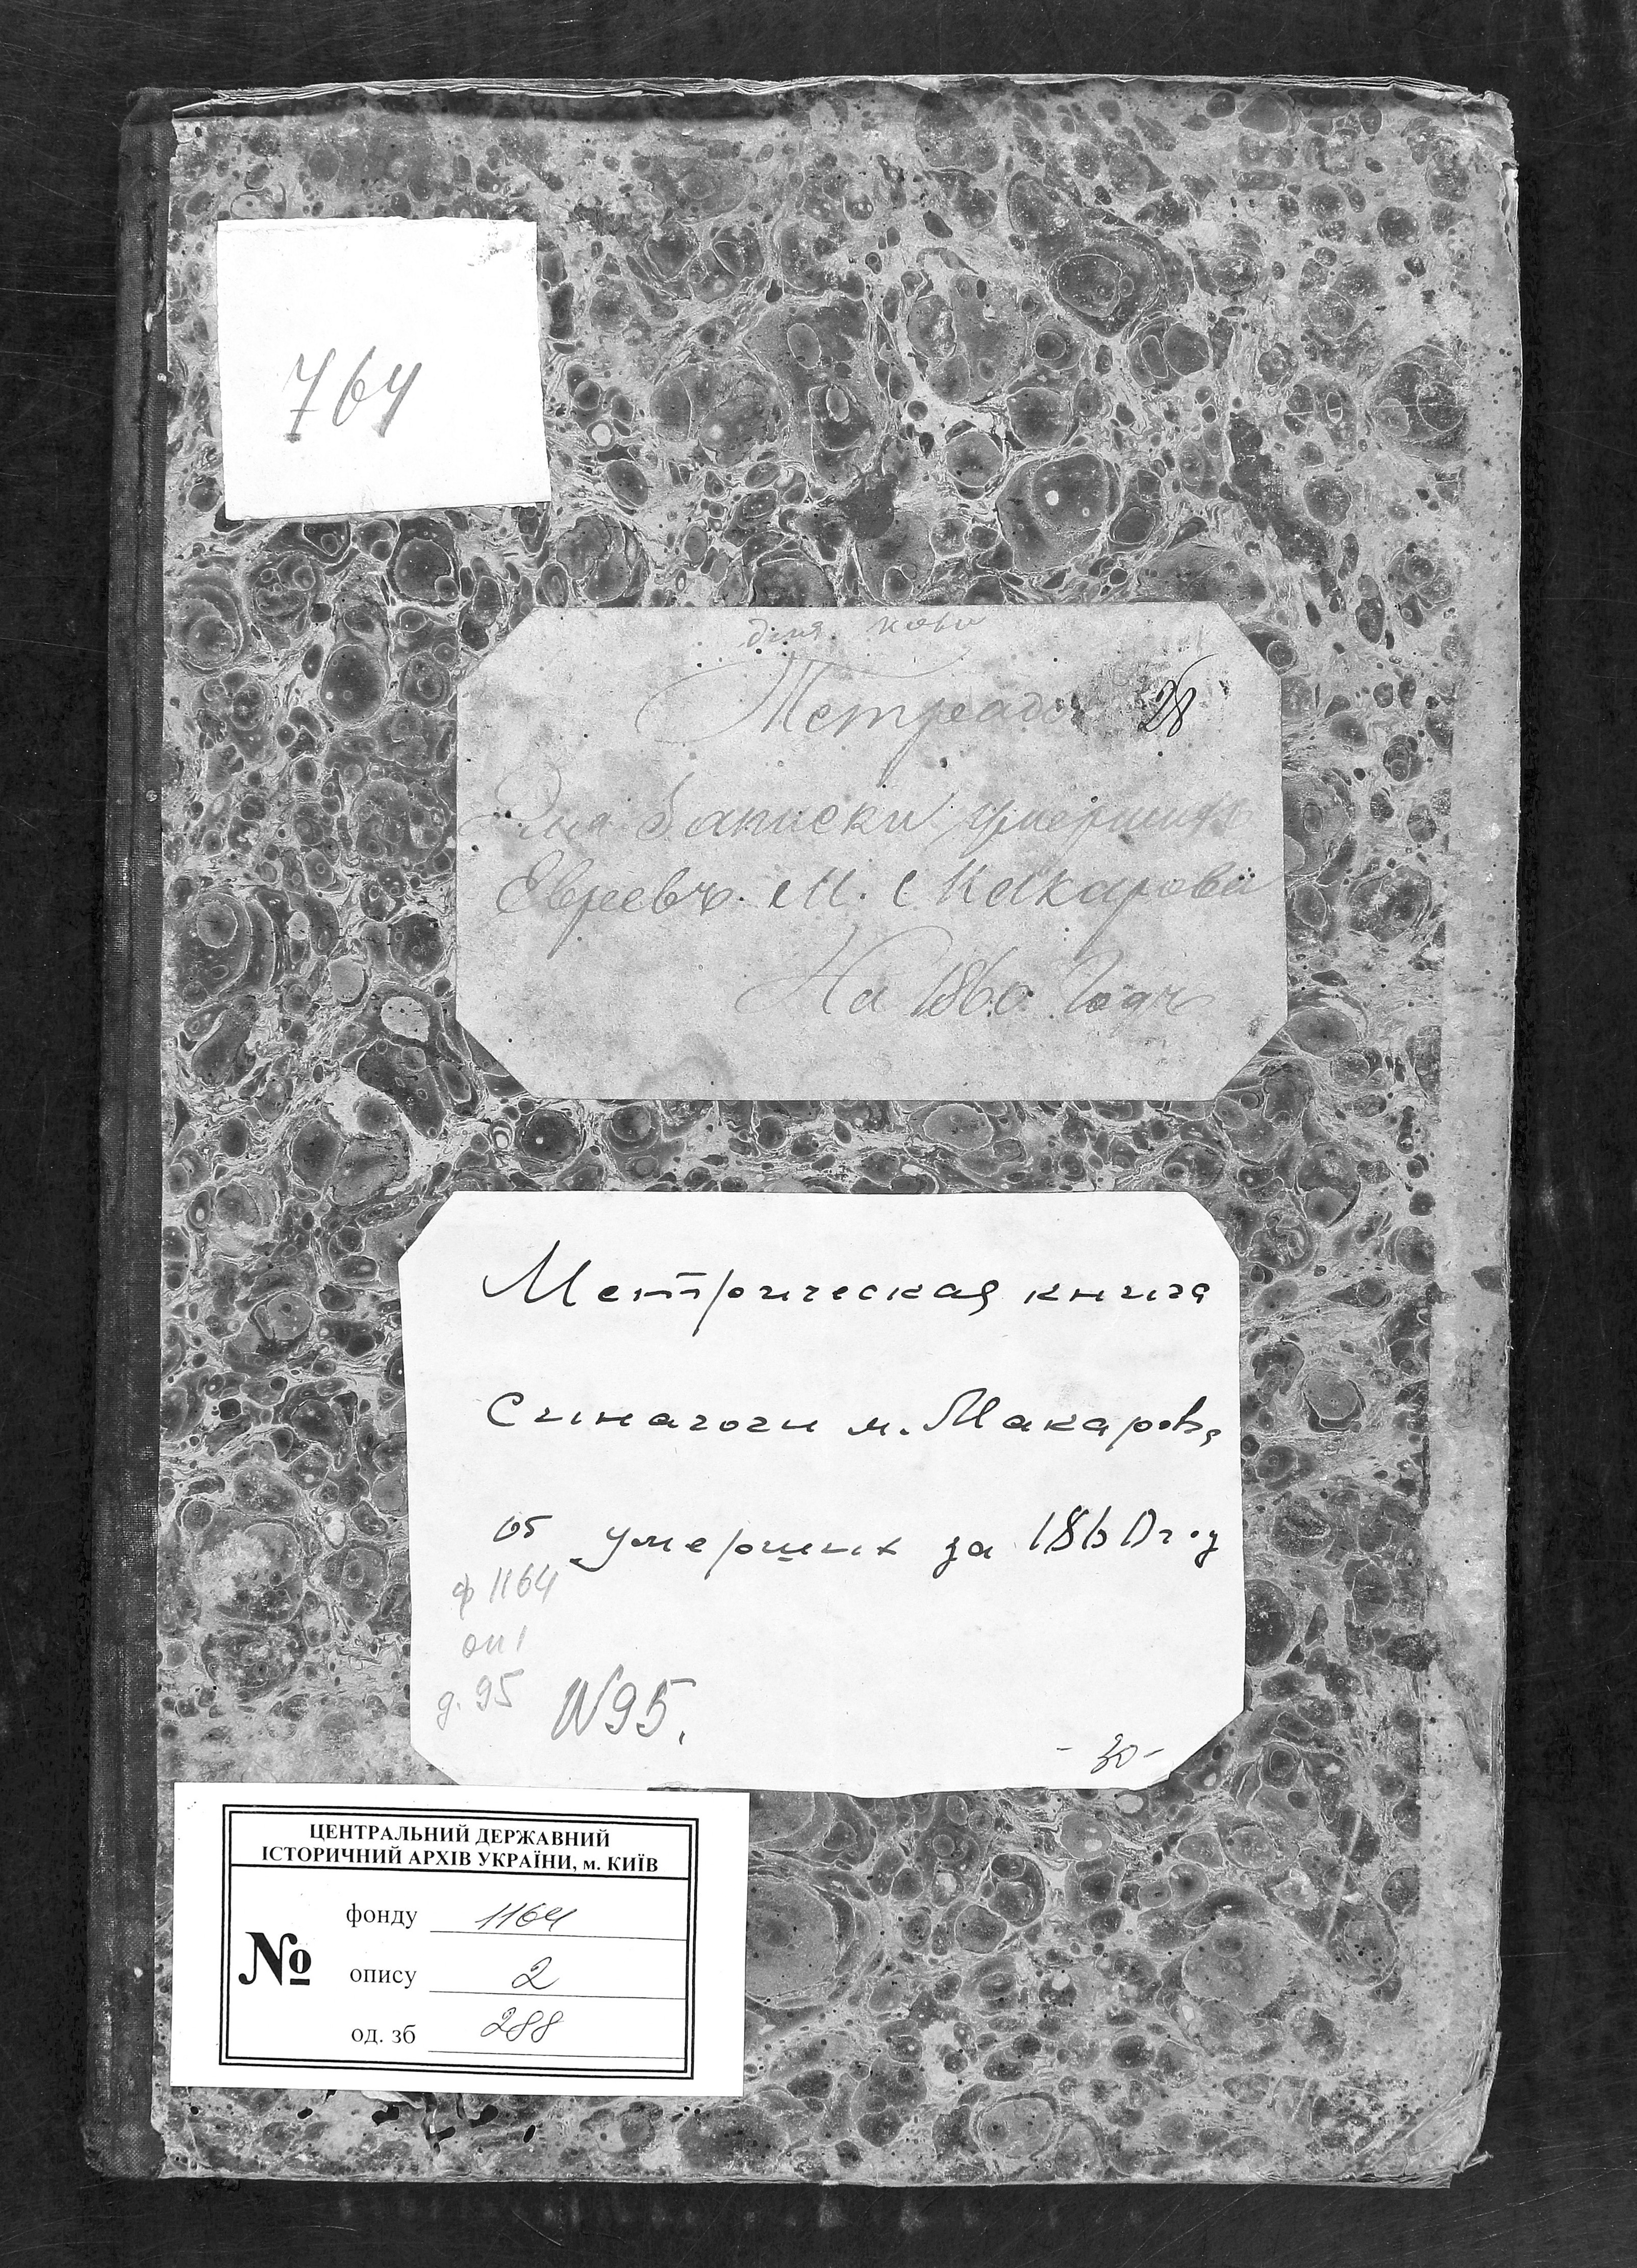 764
для
Тетрадь 28
Для Записки умершихъ
Евреевъ. М. Макарова
На 1860 Годъ
Метрическая книга
Синагоги м. Макарова
об умерших за 1860 год
ф 1164
оп 1
д. 95 N95.
- 30 -
ЦЕНТРАЛЬНИЙ ДЕРЖАВНИЙ
ІСТОРИЧНИЙ АРХІВ УКРАЇНИ, м. КИЇВ
фонду 1164
№ опису 2
од. зб 288